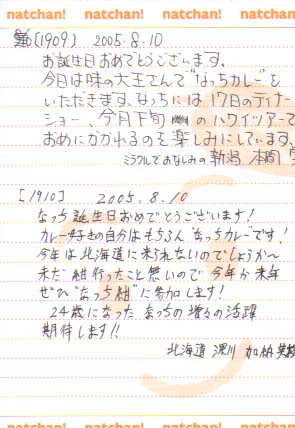 natchan! natchan! natchan! natchan!
[1909] 2005.8.10
お誕生日おめでとうございます。
今日は味の大王さんで"なっちカレー"を
いただきます。なっちには17日のディナー
ショー、今月下旬のハワイツアーで
おめにかかれるのを楽しみにしています。
ミラクルでおなじみの新潟 本間
[1910] 2005.8.10
なっち誕生日おめでとうございます!
カレー好きの自分はもちろん"なっちカレー"です!
今年は北海道に来れないのでしょうか〜
未だ紺行ったこと無いので今年か来年
ぜひ"なっち紺"に参加します!
24歳になったなっちの増々の活躍
期待します!!
北海道 深川 加納
natchan! natchan! natchan! natchan!